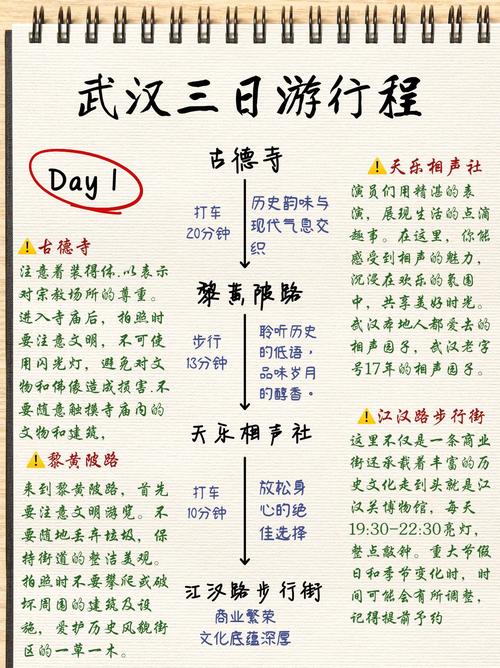 武汉三日游行程
Day 1
古德寺
打车
20分钟
历史韵味与
现代气息交
织
黎黄陂路
步行
13分钟
聆听历史
的低语，
品味岁月
的醇香。
天乐相声社
打车
10分钟
放松身
心的绝
佳选择
江汉路步行街
商业繁荣
文化底蕴深厚
古德寺
注意着装得体.以表示
对宗教场所的尊重。
进入寺庙后，拍照时
要注意文明，不可使
用闪光灯，避免对文
物和佛像造成损害.不
要随意触摸寺庙内的
文物和建筑，
黎黄陂路
来到黎黄陂路，首先
要注意文明游览。不
要随地丢弃垃圾，保
持街道的整洁美观。
拍照时不要攀爬或破
坏周围的建筑及设
施，爱护历史风貌街
区的一草一木。
天乐相声社
演员们用精湛的表
演，展现生活的点滴
趣事。在这里，你能
感受到相声的魅力，
沉浸在欢乐的氛围
中，共享美好时光。
武汉本地人都爱去的
相声园子，武汉老字
号17年的相声园子。
江汉路步行街
这里不仅是一条商业
街还承载着丰富的历
史文化走到头就是江
汉关博物馆，每天
19:30-22:30亮灯，
整点敲钟。重大节假
日和季节变化时，时
间可能会有所调整，
记得提前予约